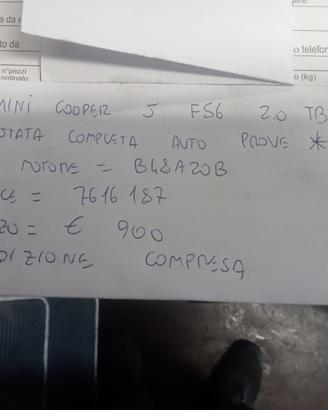 a da
to da
n°pezzi
ordinato
o telefon
o (kg)
MINI COOPER S F56 2.0 TB
STATA COMPLETA AUTO PROVE *
MOTORE = B48A20B
CE = 7616187
ZO = € 900
DIZIONE COMPRESA